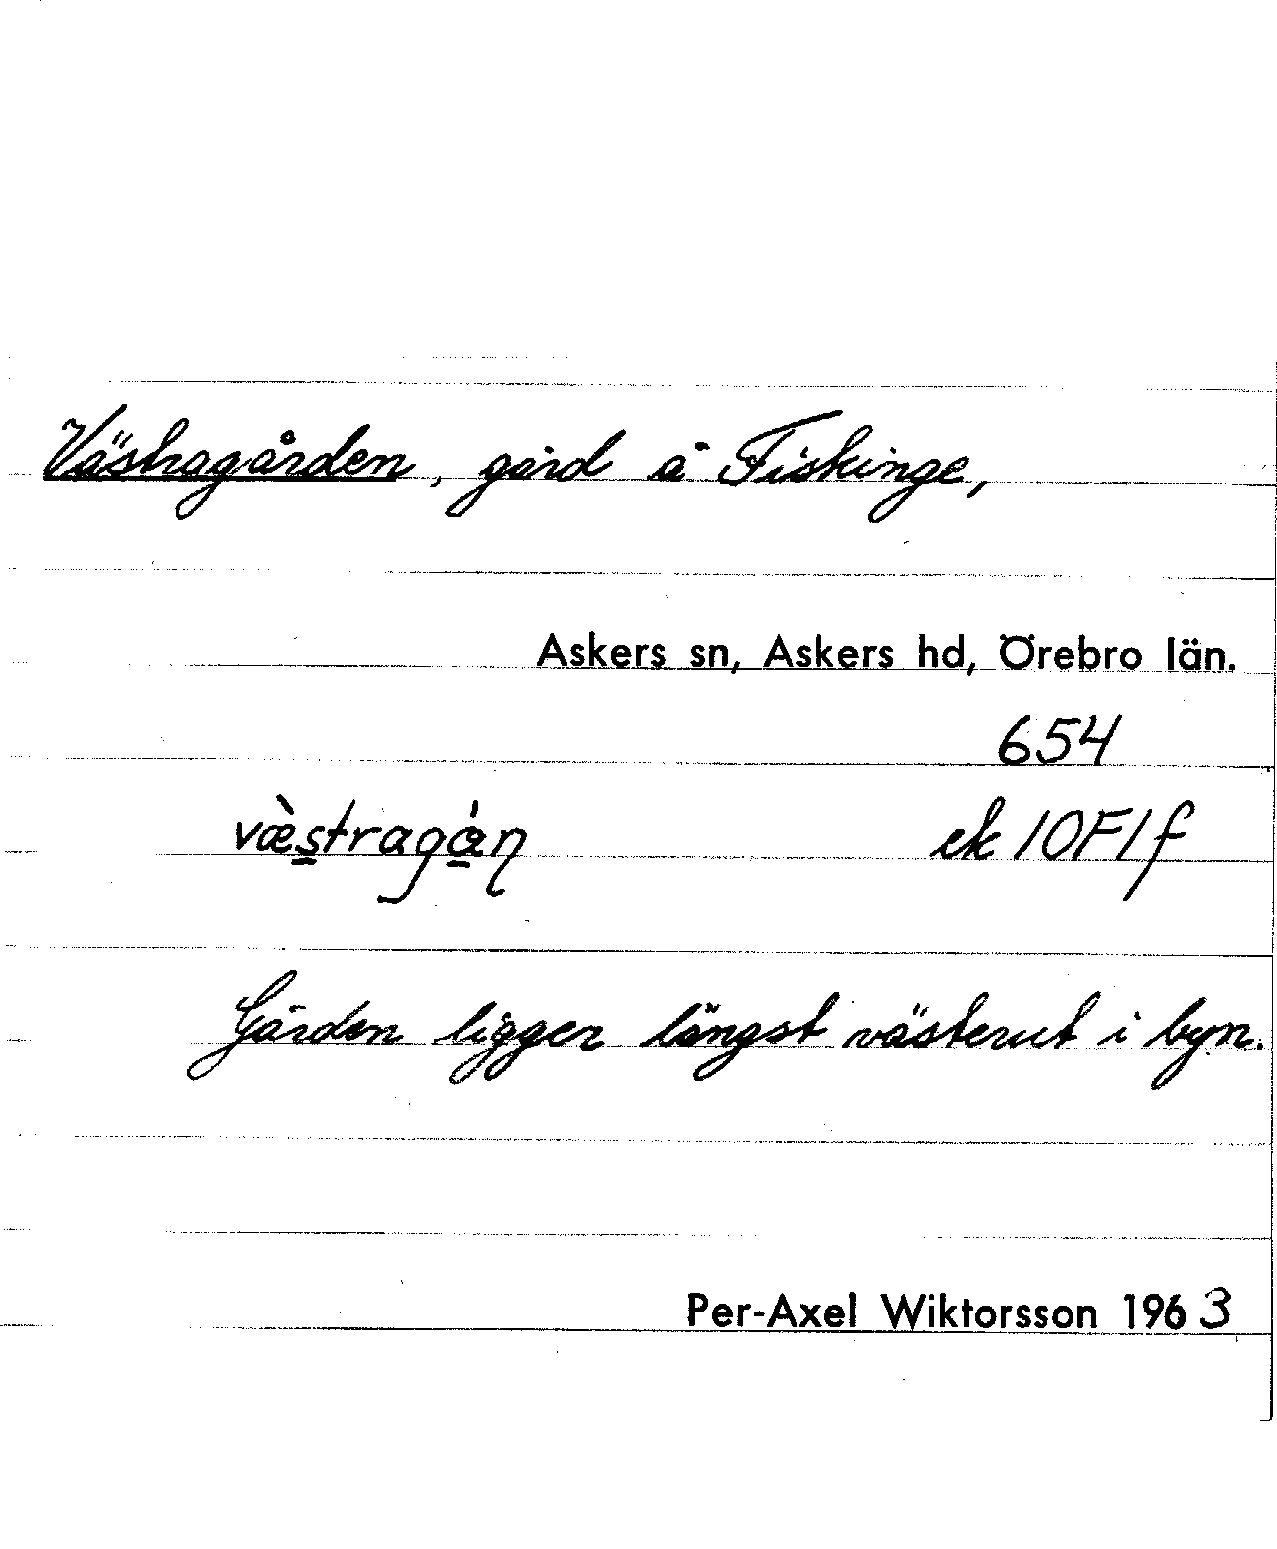 Västragården, gård å Fiskinge,
Askers sn, Askers hd, Örebro län.
654
væ̀stragán ek 10F1f
Gården ligger längst västerut i byn.
Per-Axel Wiktorsson 1963